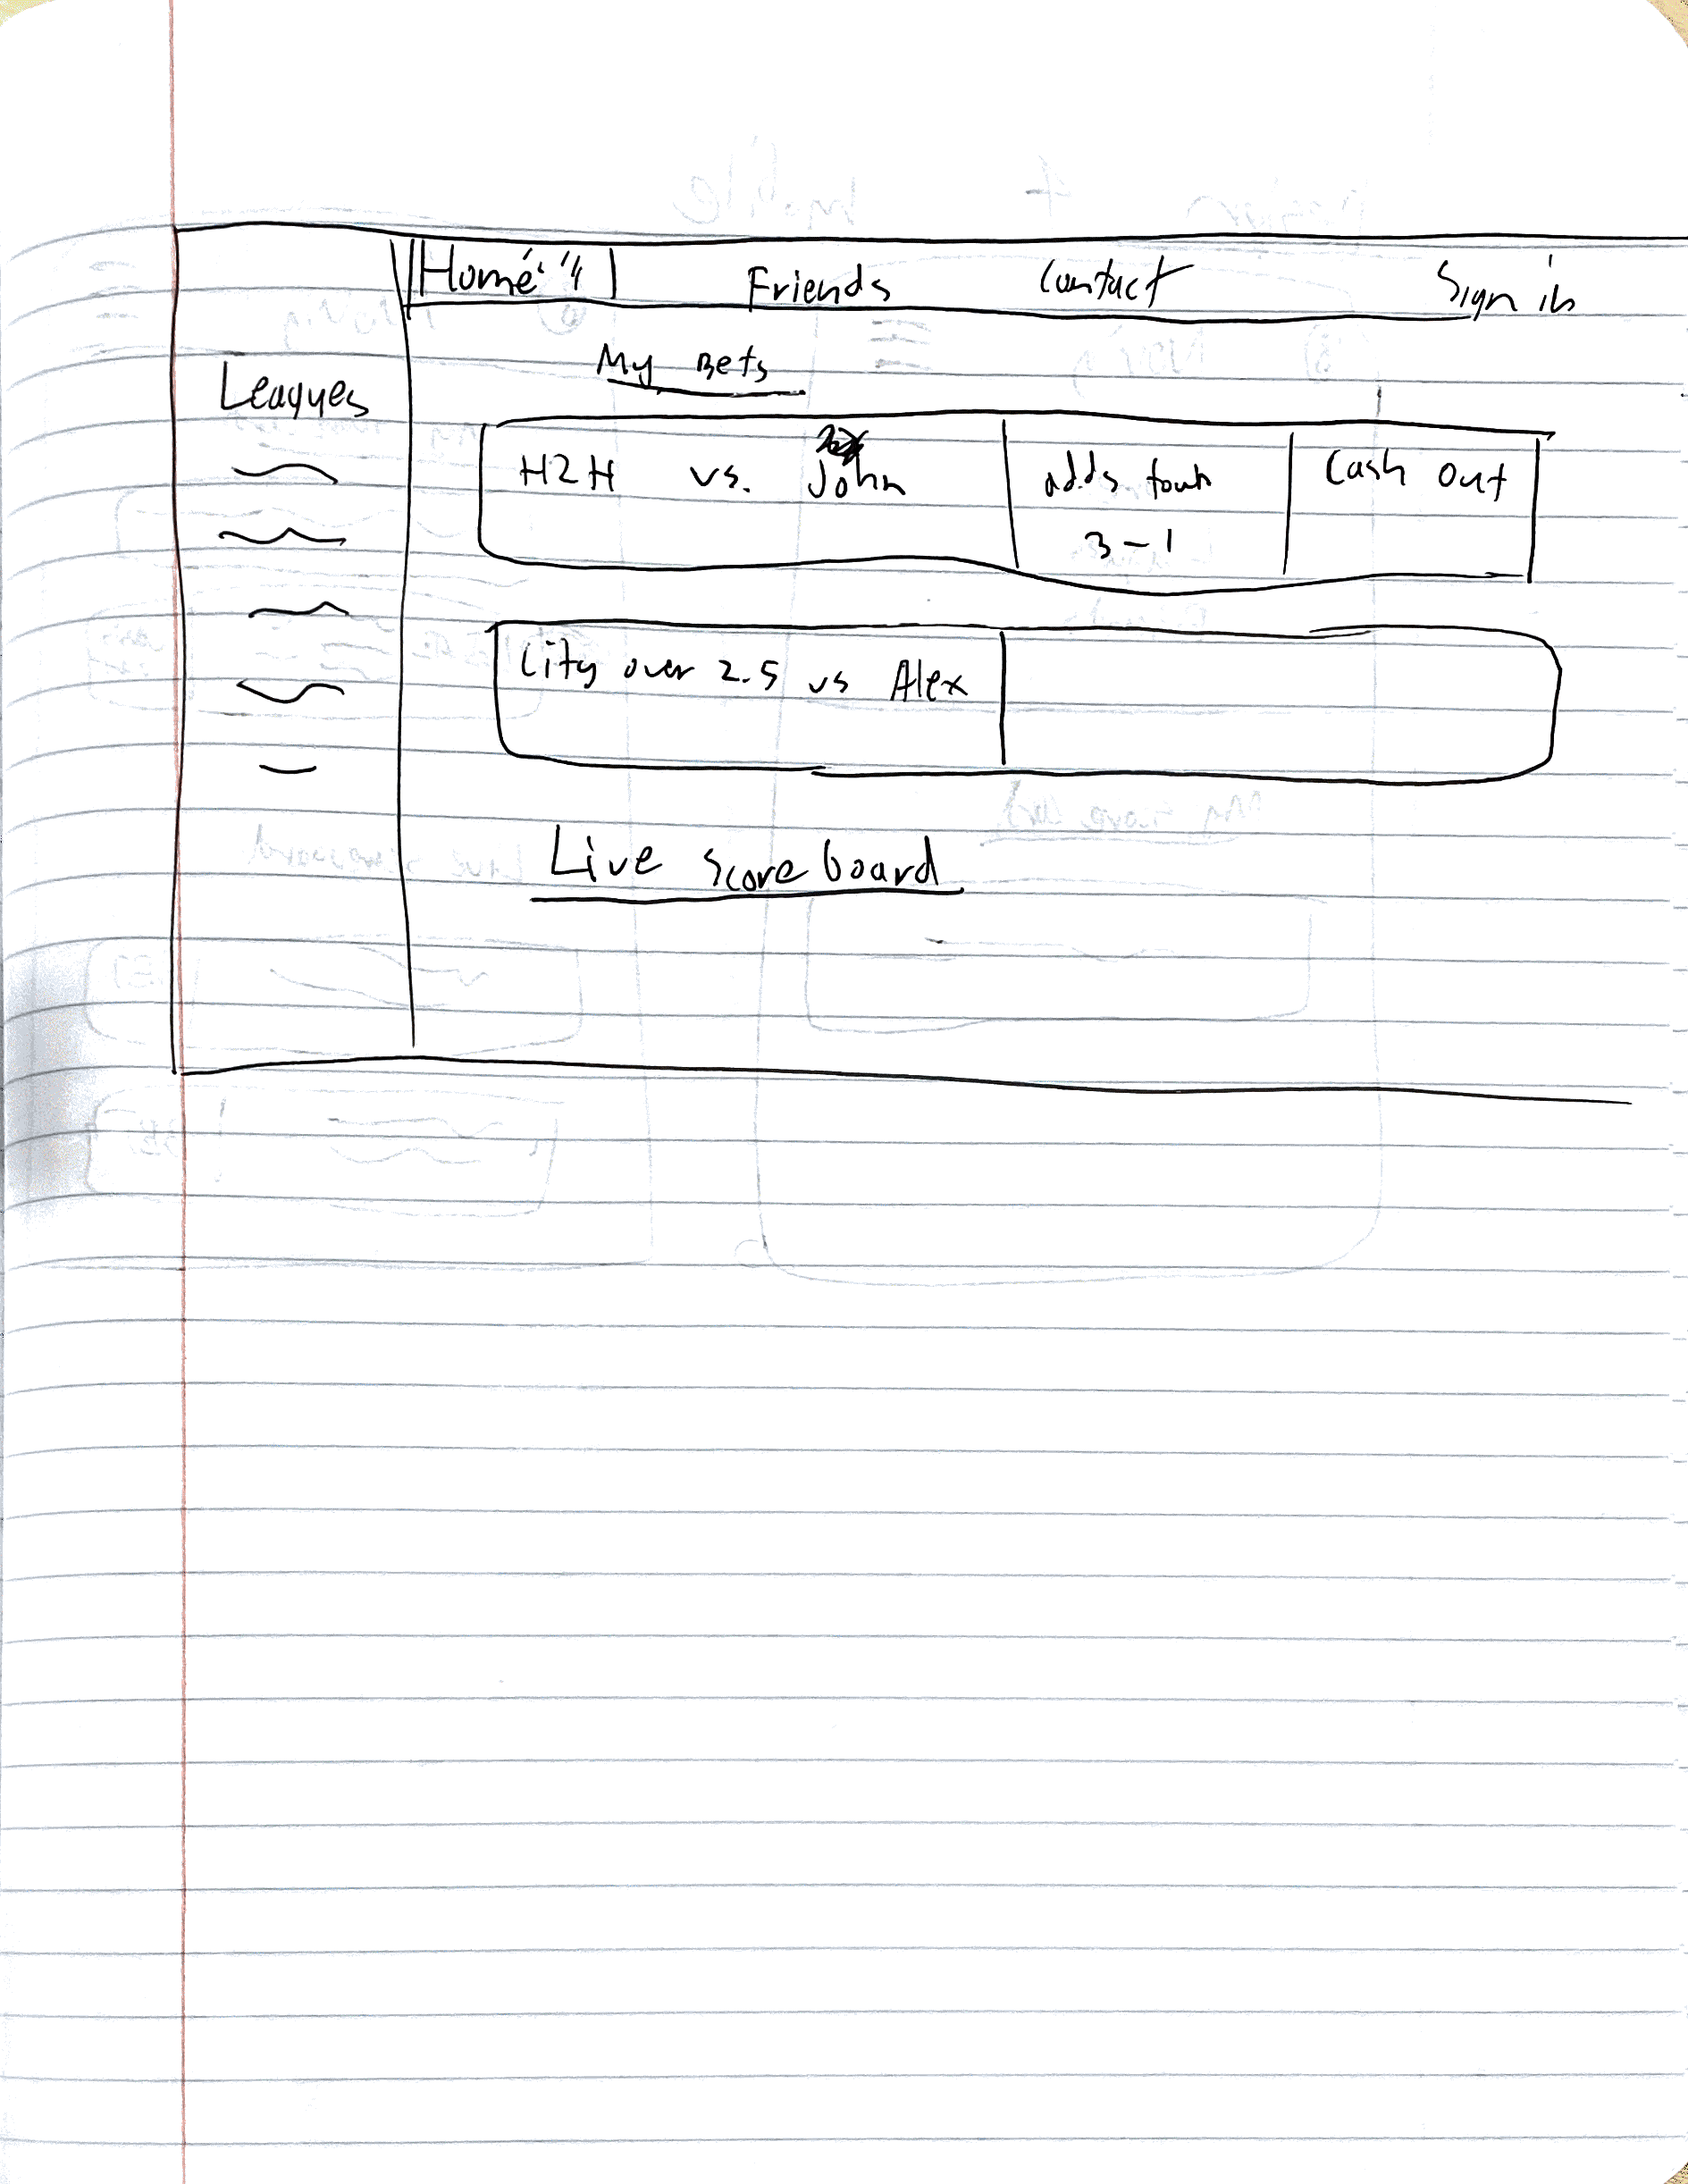 Home Friends Contact Sign in
My Bets
Leagues
H2H vs. John
odds
3-1
Cash out
City over 2.5 vs Alex
Live scoreboard